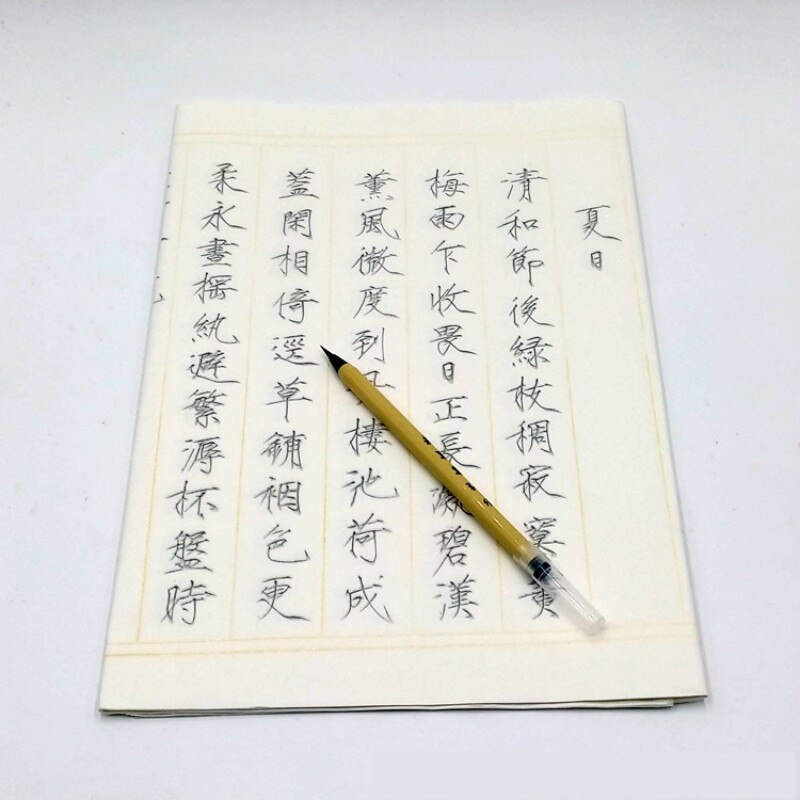 夏日
清和節後緑枝稠寂寞黃
梅雨乍收畏日正長凝碧漢
薰風微度到樓池荷成
蓋閑相倚逕草鋪裀色更
柔永晝搖紈避繁溽杯盤時